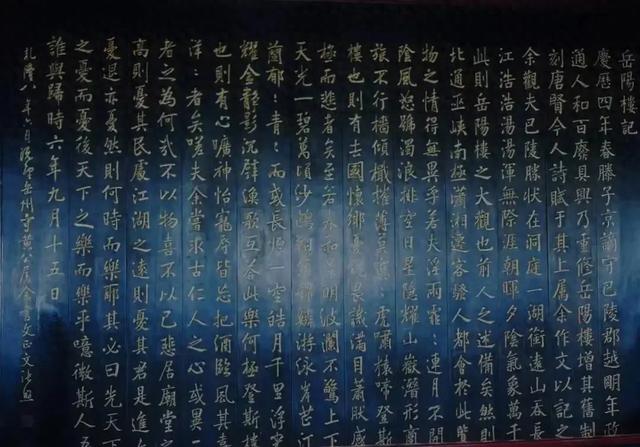 岳陽樓記
慶曆四年春滕子京謫守巴陵郡越明年政
通人和百廢具興乃重修岳陽樓增其舊制
刻唐賢今人詩賦于其上屬余作文以記之
余觀夫巴陵勝狀在洞庭一湖銜遠山吞長
江浩浩湯湯渾無際涯朝暉夕陰氣象萬千
此則岳陽樓之大觀也前人之述備矣然則
北通巫峽南極瀟湘遷客騷人都會於此覽
物之情得無異乎若夫淫雨霏霏連月不開
陰風怒號濁浪排空日星隱耀山嶽潛形商
旅不行檣傾檝摧薄暮虎嘯猿啼登斯
樓也則有去國懷鄉憂畏譏滿目蕭然感
極而悲者矣至若春和明波瀾不驚上下
天光一碧萬頃沙鷗錦鱗游泳岸芷汀
蘭郁郁青青而或長煙一空皓月千里浮
耀金靜影沉璧漁歌互答此樂何極登斯樓
也則有心曠神怡寵辱皆忘把酒臨風其喜
洋洋者矣嗟夫余嘗求古仁人之心或異二
者之為何哉不以物喜不以己悲居廟堂之
高則憂其民處江湖之遠則憂其君是進亦
憂退亦憂然則何時而樂耶其必曰先天下
之憂而憂後天下之樂而樂乎噫微斯人吾
誰與歸時六年九月十五日
乾隆八年六月岳州守黃公屬余書文正文張照